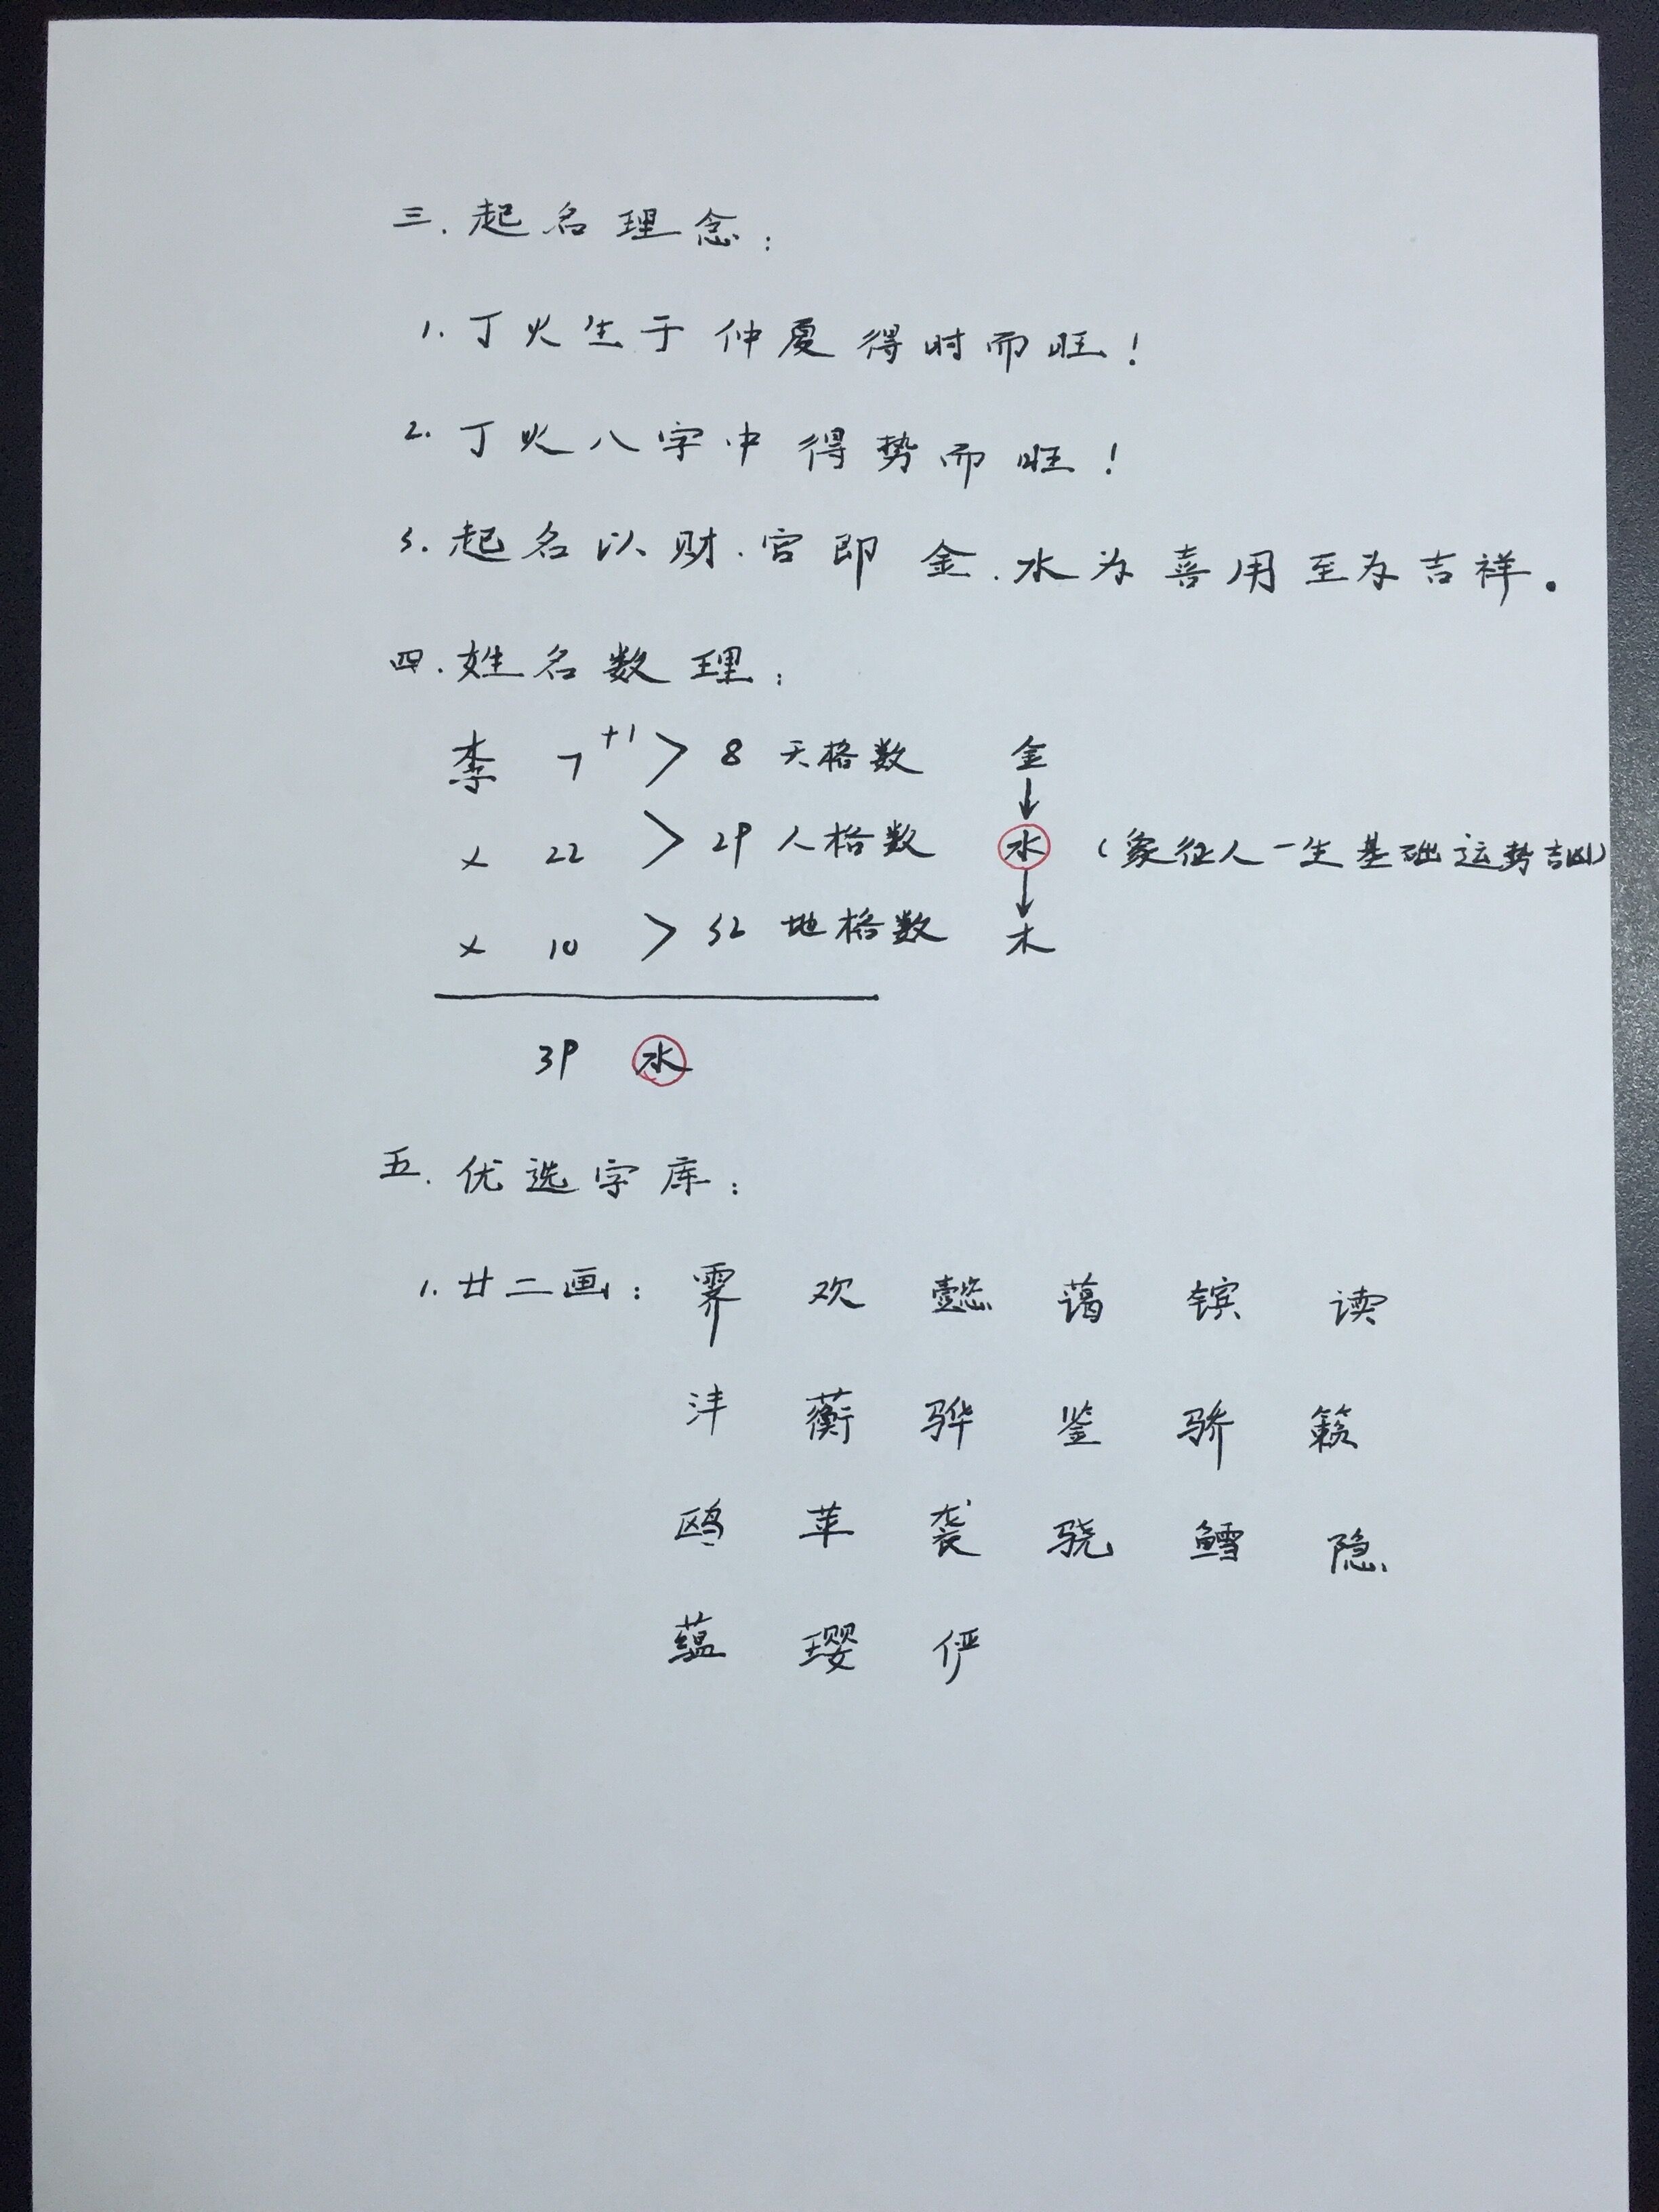 三.起名理念:
1.丁火生于仲夏得时而旺!
2.丁火八字中得势而旺!
3.起名以财.官即金.水为喜用至为吉祥。
四.姓名数理:
李 7 +1 > 8 天格数 金
↓
× 22 > 29 人格数 水 (象征人一生基础运势吉凶)
↓
× 10 > 32 地格数 木
39 水
五.优选字库:
1.廿二画: 霁 欢 懿 蔼 镔 读
沣 蘅 骅 鉴 骄 籁
鸥 苹 袭 骁 鳕 隐
蕴 璎 俨